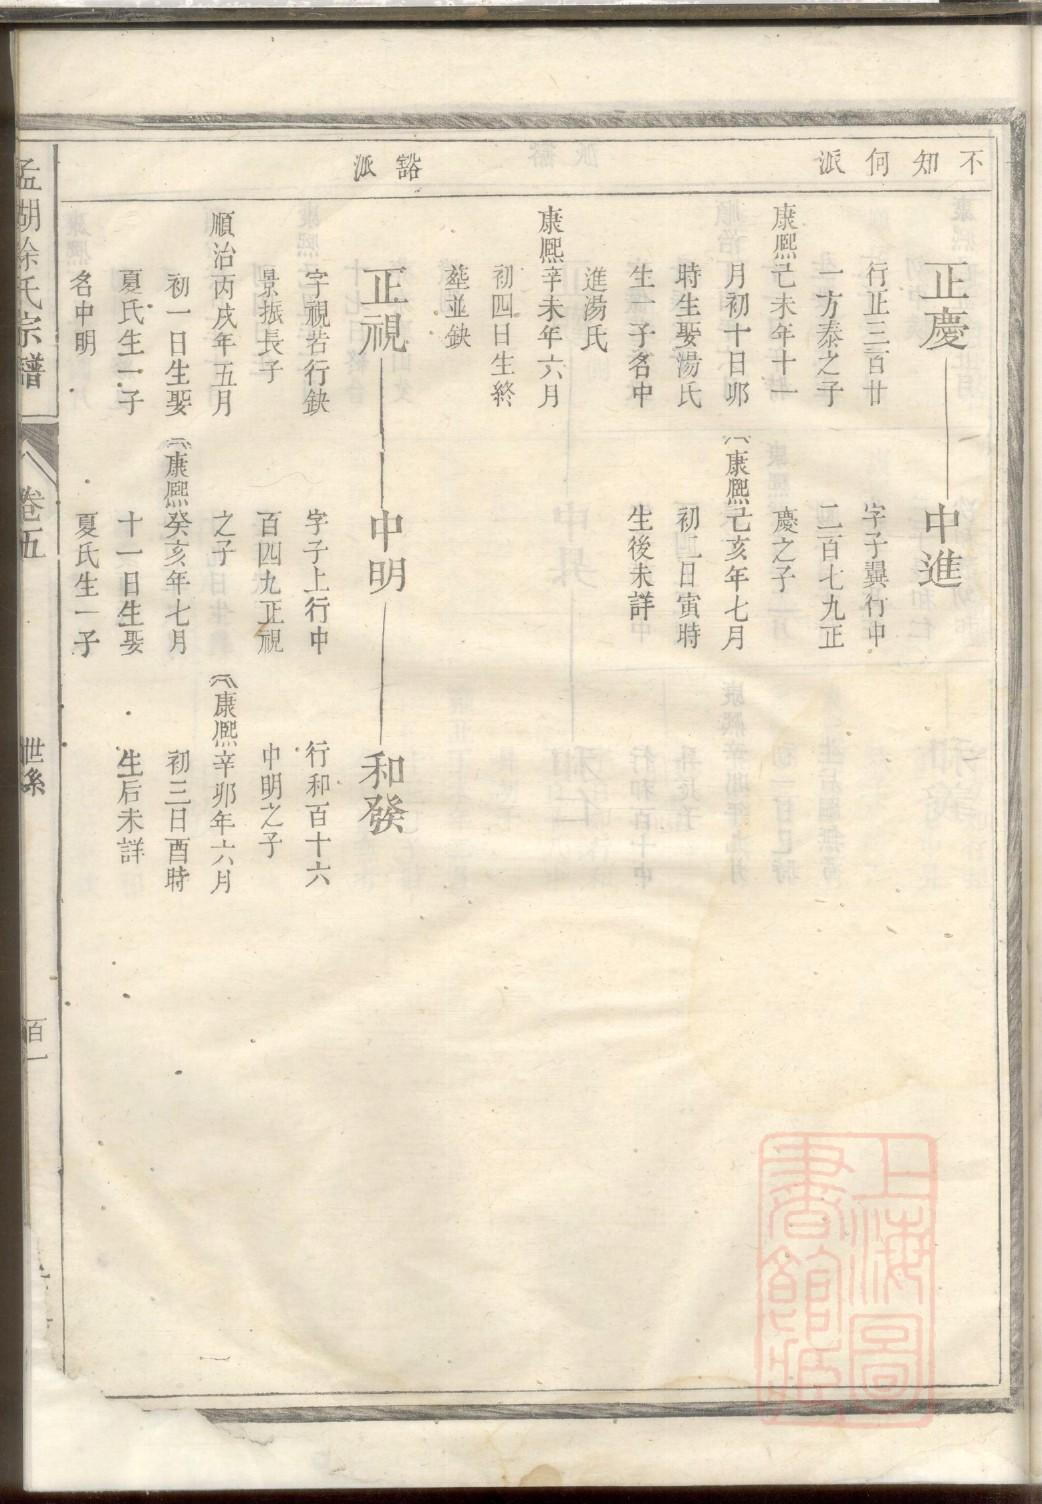 不知何派
正慶
行正三百廿
一方泰之子
康熙己未年十一
月初十日卯
時生娶湯氏
生一子名中
進湯氏
康熙辛未年六月
初四日生終
塟並缺
中進
字子巽行中
二百七九正
慶之子
康熙己亥年七月
初二日寅時
生後未詳
谿派
正視
字視若行缺
景振長子
順治丙戌年五月
初一日生娶
夏氏生一子
名中明
中明
字子上行中
百四九正視
之子
康熙癸亥年七月
十一日生娶
夏氏生一子
和發
行和百十六
中明之子
康熙辛卯年六月
初三日酉時
生后未詳
孟湖徐氏宗譜
卷五
世系
百一
上海圖
書館藏